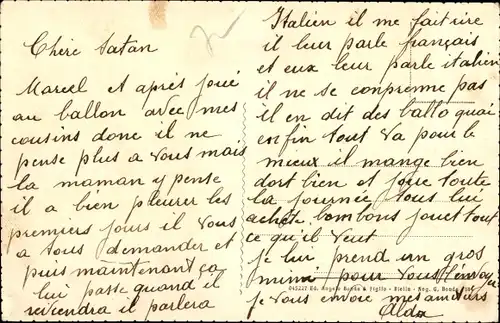 Chère tatan
Marcel et après joué
au ballon avec mes
cousins donc il ne
pense plus a vous mais
la maman y pense
il a bien pleurer les
premiers jours il vous
a tous demander et
puis maintenant ça
lui passe quand il
reviendra il parlera
Italien il me fait rire
il leur parle français
et eux leur parle italien
il ne se conprenne pas
il en dit des ballo quai
enfin tout va pour le
mieux il mange bien
dort bien et joue toute
la journée tous lui
achète bombons jouet tout
ce qu'il veut
je lui prend un gros
mimi pour vous
je vous envoie mes amitiers
Alda
045227 Ed. & Figlio - Biella - Neg. G.